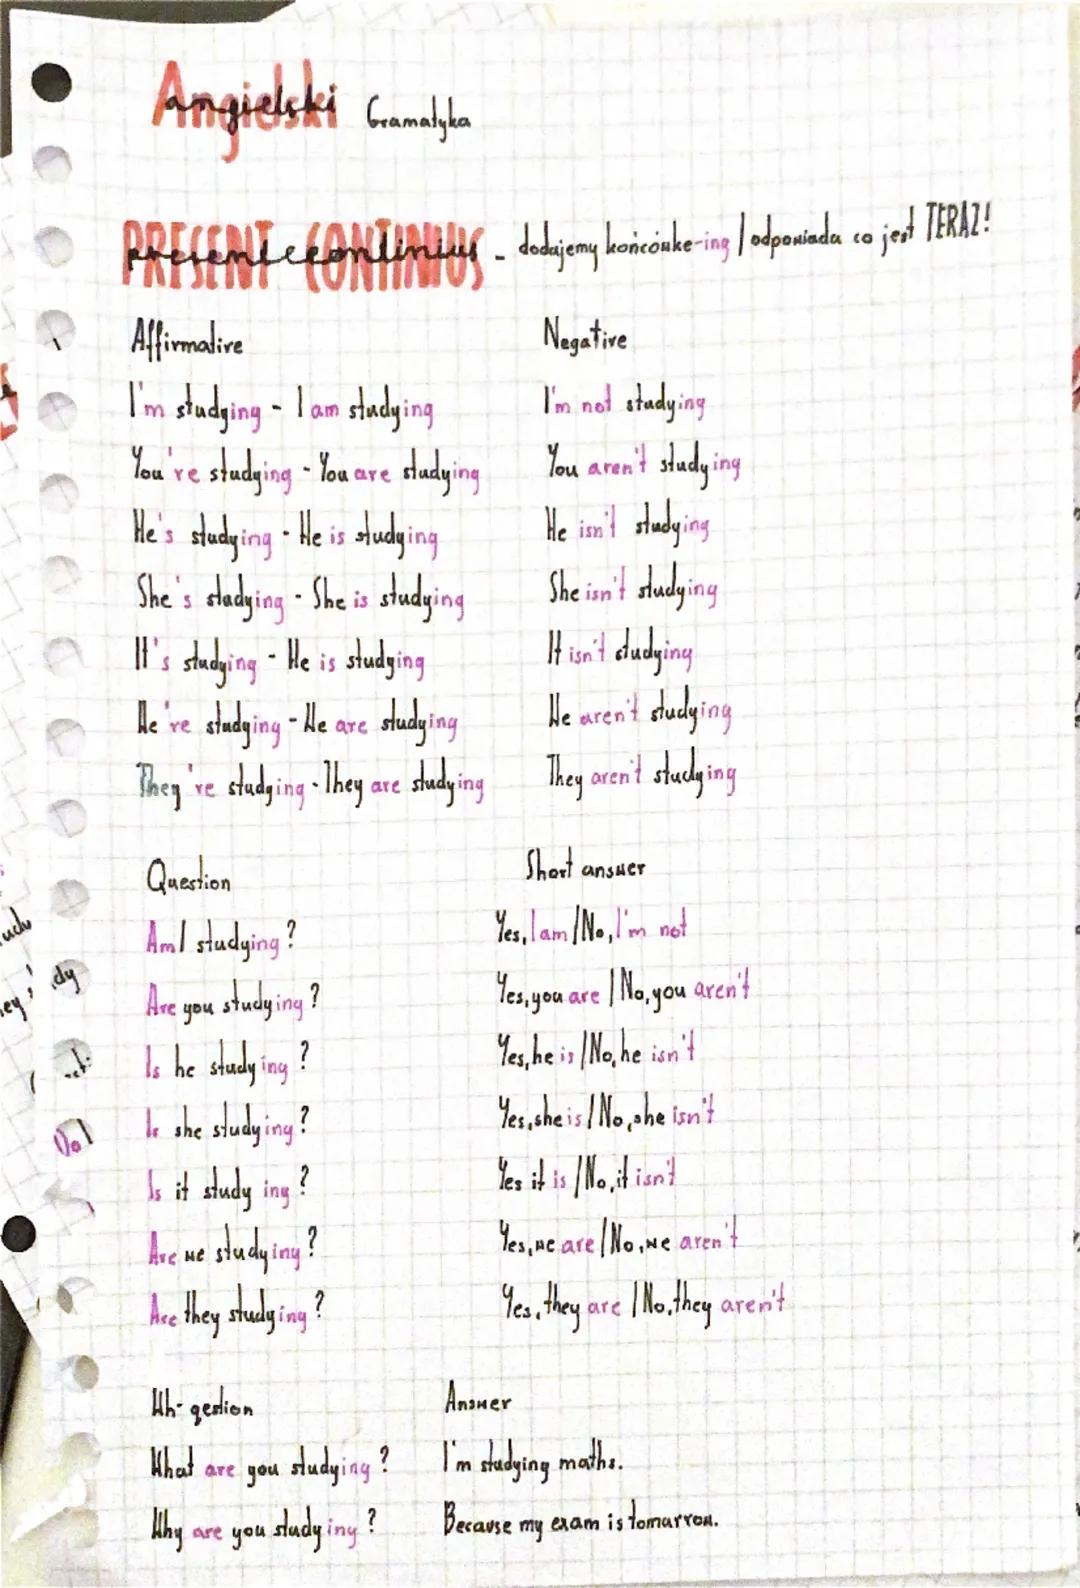 Angielski Gramatyka
PRESENT CONTINIUS - dodajemy końcówke -ing / odpowiada co jest TERAZ!
Affirmative Negative
I'm studying - I am studying I'm not studying
You're studying - You are studying You aren't studying
He's studying - He is studying He isn't studying
She's studying - She is studying She isn't studying
It's studying - He is studying It isn't studying
We're studying - We are studying We aren't studying
They're studying - They are studying They aren't studying
Question Short answer
Am I studying? Yes, I am / No, I'm not
Are you studying? Yes, you are / No, you aren't
Is he studying? Yes, he is / No, he isn't
Is she studying? Yes, she is / No, she isn't
Is it studying? Yes it is / No, it isn't
Are we studying? Yes, we are / No, we aren't
Are they studying? Yes, they are / No, they aren't
Wh- qestion Answer
What are you studying? I'm studying maths.
Why are you studying? Because my exam is tomarrow.